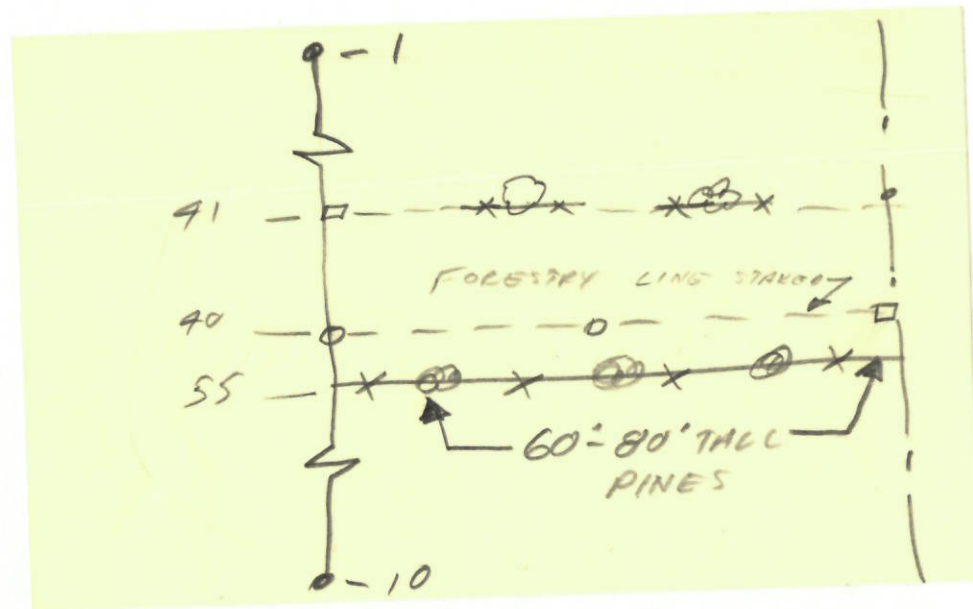 - 1
41
FORESTRY LINE STAKED
40
55
60'-80' TALL
PINES
- 10